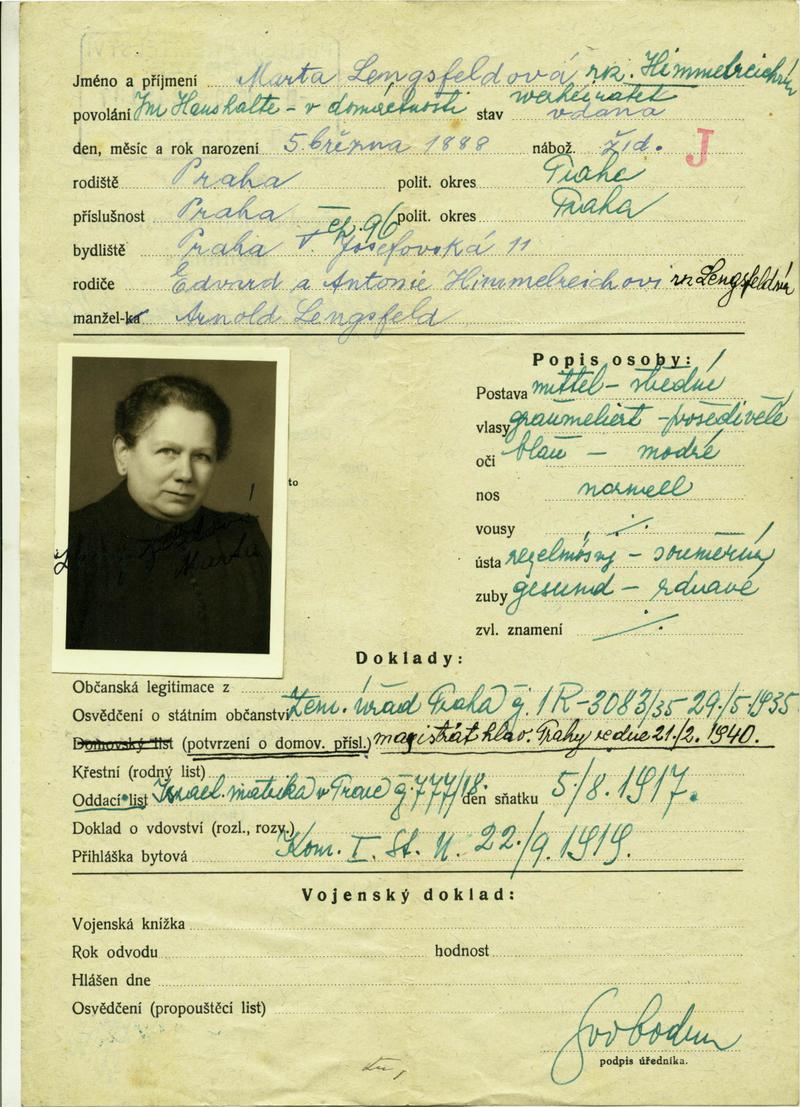 Jméno a příjmení Marta Lengsfeldová roz. Himmelreichův
povolání Im Haushalte – v domácnosti stav verheiratet vdaná
den, měsíc a rok narození 5. března 1888 nábož. žid. J
rodiště Praha polit. okres Praha
příslušnost Praha polit. okres Praha
čp. 96
bydliště Praha V Josefovská 11
rodiče Edvard a Antonie Himmelreichovi roz. Lengsfeldův
manžel-ka Arnold Lengsfeld
Popis osoby:
Postava mittel – střední
vlasy graumeliert – prošedivělé
oči blau – modré
to
nos normell
vousy ./.
Marta
ústa regelmässig – souměrný
zuby gesund – zdravé
zvl. znamení ./.
Doklady:
Občanská legitimace z
Osvědčení o státním občanství Zem. úřad Praha čj. 1R-3083/35 29./5. 1935
Domovský list (potvrzení o domov. přísl.) magistrát hlav. Prahy ze dne 21./2. 1940.
Křestní (rodný list)
Oddací list Israel. matrika v Praze čj. 777/18. den sňatku 5./8. 1917.
Doklad o vdovství (rozl., rozv.)
Přihláška bytová Kom. I. St. N. 22./9. 1919.
Vojenský doklad:
Vojenská knížka
Rok odvodu hodnost
Hlášen dne
Osvědčení (propouštěcí list)
Svoboden
podpis úředníka.